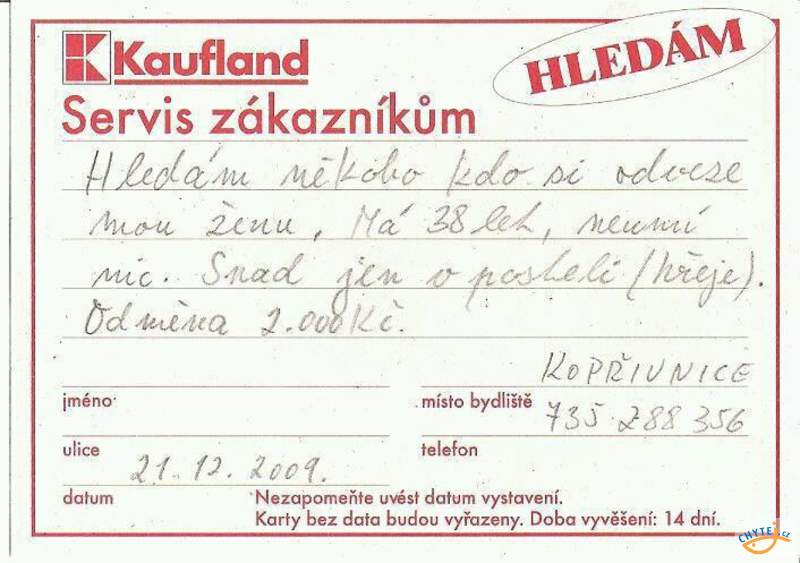 Kaufland
HLEDÁM
Servis zákazníkům
Hledám někoho kdo si odveze
mou ženu, Má 38 let, neumí
nic. Snad jen v posteli (hřeje).
Odměna 2.000Kč.
KOPŘIVNICE
jméno
místo bydliště
735 288 356
ulice
telefon
21.12.2009.
datum
Nezapomeňte uvést datum vystavení.
Karty bez data budou vyřazeny. Doba vyvěšení: 14 dní.
CHYTEJ.cz